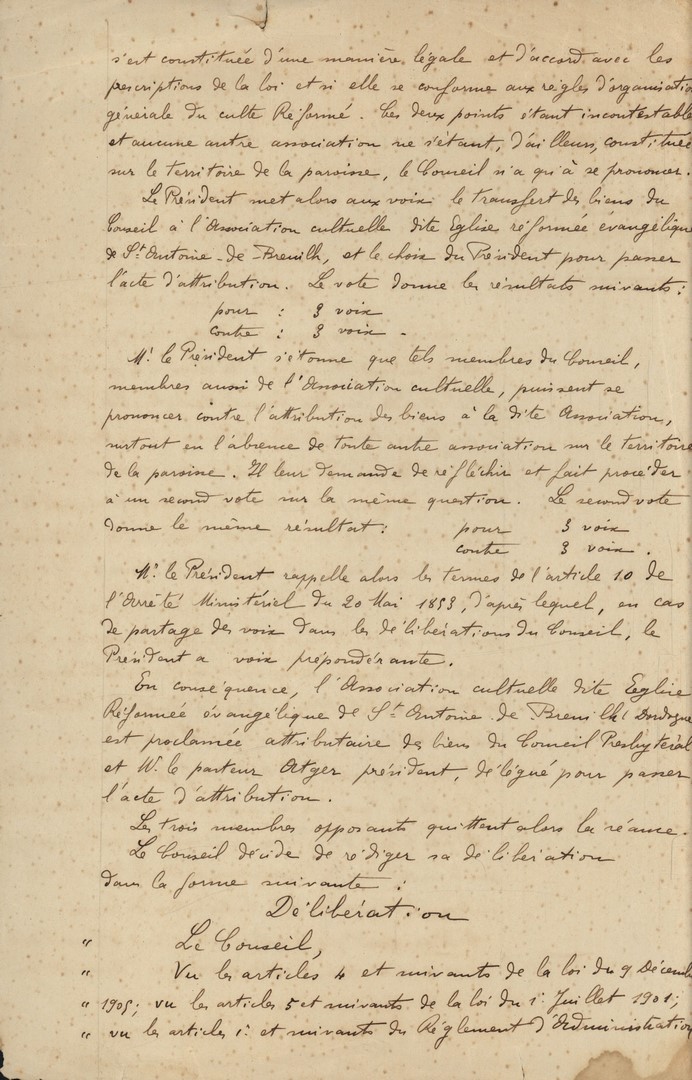 s'est constituée d'une manière légale et d'accord avec les
prescriptions de la loi et si elle se conforme aux règles d'organisation
générale du culte Réformé. Ces deux points étant incontestables
et aucune autre association ne s'étant, d'ailleurs, constituée
sur le territoire de la paroisse, le Conseil n'a qu'à se prononcer.
Le Président met alors aux voix le transfert des biens du
Conseil à l'Association cultuelle dite Eglise réformée évangélique
de St Antoine-de-Breuilh, et le choix du Président pour passer
l'acte d'attribution. Le vote donne les résultats suivants :
pour : 3 voix
contre : 3 voix.
Mr. le Président s'étonne que tels membres du Conseil,
membres aussi de l'Association cultuelle, puissent se
prononcer contre l'attribution des biens à la dite Association,
surtout en l'absence de toute autre association sur le territoire
de la paroisse. Il leur demande de réfléchir et fait procéder
à un second vote sur la même question. Le second vote
donne le même résultat : pour 3 voix
contre 3 voix.
Mr. le Président rappelle alors les termes de l'article 10 de
l'Arrêté Ministériel du 20 Mai 1853, d'après lequel, en cas
de partage des voix dans les délibérations du Conseil, le
Président a voix prépondérante.
En conséquence, l'Association cultuelle dite Eglise
Réformée évangélique de St Antoine de Breuilh (Dordogne
est proclamée attributaire des biens du Conseil Presbytéral
et M. le pasteur Atger président, délégué pour passer
l'acte d'attribution.
Les trois membres opposants quittent alors la séance.
Le Conseil décide de rédiger sa délibération
dans la forme suivante :
Délibération
" Le Conseil,
" Vu les articles 4 et suivants de la loi du 9 Décemb
" 1905; vu les articles 5 et suivants de la loi du 1r Juillet 1901;
" vu les articles 1r et suivants du Règlement d'Administration